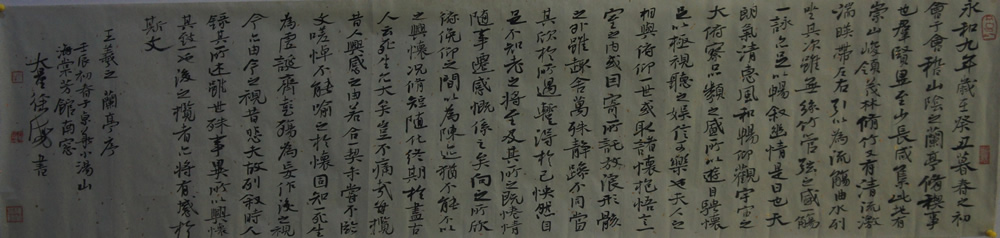 永和九年歲在癸丑暮春之初
會于會稽山陰之蘭亭脩稧事
也羣賢畢至少長咸集此地有
崇山峻領茂林脩竹有清流激
湍暎帶左右引以為流觴曲水列
坐其次雖無絲竹管弦之盛觴
一詠亦足以暢敘幽情是日也天
朗氣清惠風和暢仰觀宇宙之
大俯察品類之盛所以遊目騁懷
足以極視聽之娛信可樂也夫人之
相與俯仰一世或取諸懷抱悟言一
室之內或因寄所託放浪形骸
之外雖趣舍萬殊靜躁不同當
其欣於所遇暫得於己怏然自
足不知老之將至及其所之既惓情
隨事遷感慨係之矣向之所欣
俯仰之間以為陳迹猶不能不以
之興懷況脩短隨化終期於盡古
人云死生亦大矣豈不痛哉每攬
昔人興感之由若合一契未嘗不臨
文嗟悼不能喻之於懷固知死生
為虛誕齊彭殤為妄作後之視
今亦由今之視昔悲夫故列敘時人
錄其所述雖世殊事異所以興懷
其致一也後之攬者亦將有感於
斯文
王羲之蘭亭序
初春于小湯山
海棠芳館南窓
徐書